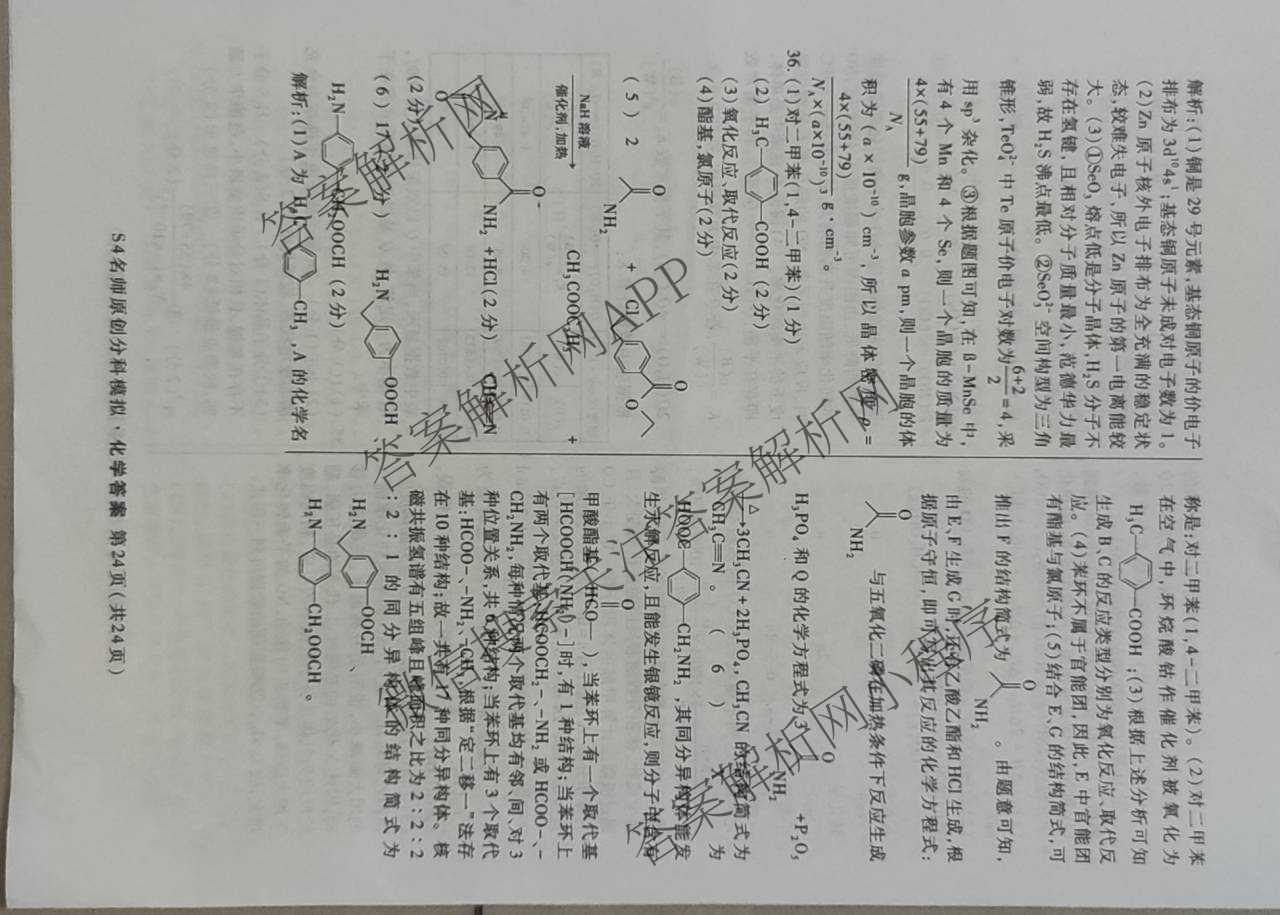 解析:(1)铜是29号元素,基态铜原子的价电子
排布为3d¹⁰4s¹;基态铜原子未成对电子数为1。
(2)Zn原子核外电子排布为全充满的稳定状
态,较难失电子,所以Zn原子的第一电离能较
大。(3)①SeO₂熔点低是分子晶体,H₂S分子不
存在氢键,且相对分子质量最小,范德华力最
弱,故H₂S沸点最低。②SeO₃²⁻空间构型为三角
锥形,TeO₄²⁻中Te原子价电子对数为(6+2)/2=4,采
用sp³杂化。③根据题图可知,在β-MnSe中,
有4个Mn和4个Se,则一个晶胞的质量为
4×(55+79)/N_A g,晶胞参数a pm,则一个晶胞的体
积为(a×10⁻¹⁰)cm⁻³,所以晶体密度ρ=
4×(55+79)/(N_A×(a×10⁻¹⁰)³) g·cm⁻³。
36.(1)对二甲苯(1,4-二甲苯)(1分)
(2)H₃C— —COOH(2分)
(3)氧化反应、取代反应(2分)
(4)酯基,氯原子(2分)
(5)2 O NH₂ + Cl O O
NaH溶液 催化剂,加热 CH₃COOC₂H₅ +
O N H O NH₂ +HCl(2分) CH₃C≡N
(2分)
(6)17(2分) H₂N —OOCH、
H₂N— —CH₂OOCH(2分)
解析:(1)A为H₃C— —CH₃,A的化学名
称是:对二甲苯(1,4-二甲苯)。(2)对二甲苯
在空气中,环烷酸钴作催化剂被氧化为
H₃C— —COOH;(3)根据上述分析可知
生成B、C的反应类型分别为氧化反应、取代反
应。(4)苯环不属于官能团,因此,E中官能团
有酯基与氯原子;(5)结合E、G的结构简式,可
推出F的结构简式为 O NH₂ 。由题意可知,
由E、F生成G时,还有乙酸乙酯和HCl生成,根
据原子守恒,即可写出其反应的化学方程式:
O NH₂ 与五氧化二磷在加热条件下反应生成
H₃PO₄和Q的化学方程式为3 O NH₂ +P₂O₅
△ 3CH₃CN+2H₃PO₄,CH₃CN的结构简式为
CH₃C≡N。(6)为
HOOC— —CH₂NH₂,其同分异构体能发
生水解反应,且能发生银镜反应,则分子中含有
甲酸酯基(HCO—),当苯环上有一个取代基
[HCOOCH(NH₂)-]时,有1种结构;当苯环上
有两个取代基:HCOOCH₂-、-NH₂或HCOO-、-
CH₂NH₂,每种情况两个取代基均有邻、间、对3
种位置关系,共6种结构;当苯环上有3个取代
基:HCOO-、-NH₂、-CH₃,根据“定二移一”法存
在10种结构;故一共有17种同分异构体。核
磁共振氢谱有五组峰且峰面积之比为2:2:2
:2:1的同分异构体的结构简式为
H₂N —OOCH、
H₂N— —CH₂OOCH。
S4名师原创分科模拟·化学答案 第24页(共24页)
答案解析网APP
答案解析网